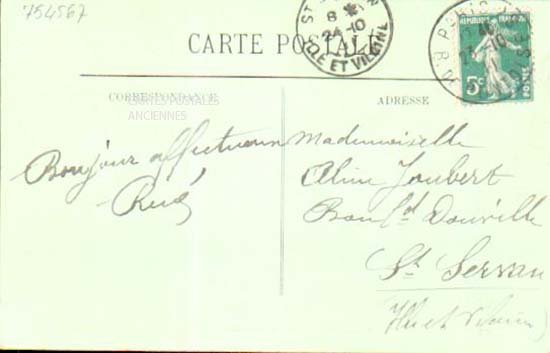 754567
CARTE POSTALE
ST
8
24-10
ILLE ET VILAINE
PARIS
RÉPUBLIQUE FRANÇAISE
5c
POSTES
CORRESPONDANCE
ADRESSE
CARTES POSTALES
ANCIENNES
Bonjour affectueux
René
Mademoiselle
Aline Joubert
Boul^d Douville
St Servan
Ille et Vilaine